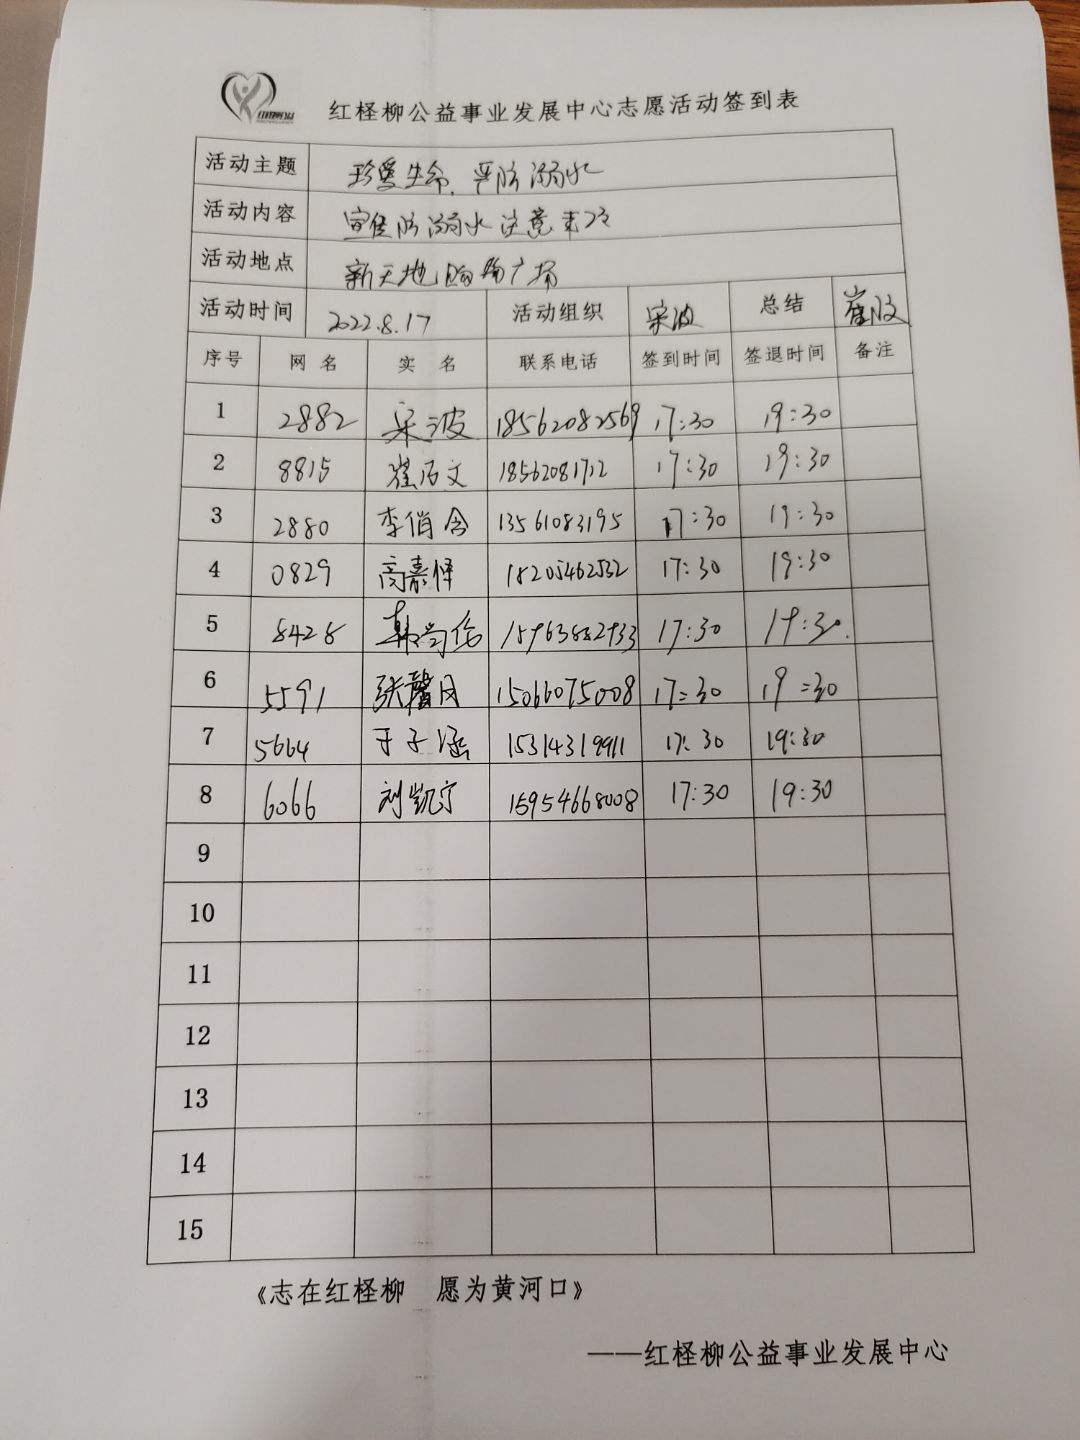 红柽柳公益事业发展中心志愿活动签到表
活动主题 珍爱生命，严防溺水
活动内容 宣传防溺水注意事项
活动地点 新天地购物广场
活动时间 2022.8.17 活动组织 宋波 总结 崔
序号 网名 实名 联系电话 签到时间 签退时间 备注
1 2882 宋波 18562082569 17:30 19:30
2 8815 崔 文 18562081712 17:30 19:30
3 2880 李俏含 13561083195 17:30 19:30
4 0829 高嘉怿 18205462532 17:30 19:30
5 8428 韩尚伦 15963882933 17:30 19:30.
6 5591 张馨月 15066075008 17:30 19:30
7 5664 于子涵 15314319911 17:30 19:30
8 6066 刘凯宁 15954668008 17:30 19:30
9
10
11
12
13
14
15
《志在红柽柳 愿为黄河口》
——红柽柳公益事业发展中心